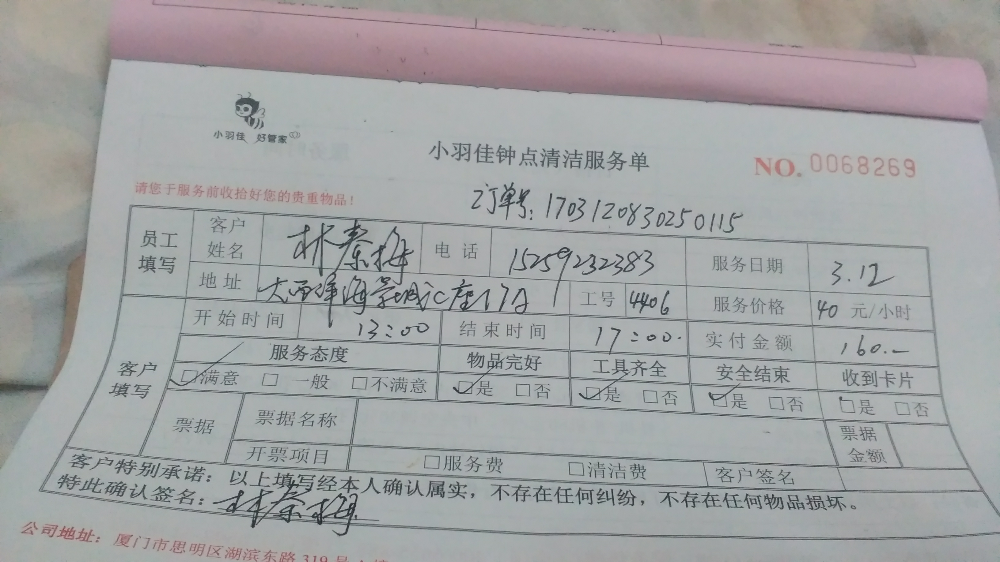 小羽佳 好管家
小羽佳钟点清洁服务单
NO. 0068269
请您于服务前收拾好您的贵重物品！
订单号：1703120830250115
员工填写 客户姓名 林秦梅 电话 15259232383 服务日期 3.12
地址 大西洋海景城C座17A 工号 4406 服务价格 40 元/小时
开始时间 13:00 结束时间 17:00. 实付金额 160.-
客户填写 服务态度 物品完好 工具齐全 安全结束 收到卡片
☑满意 □一般 □不满意 ☑是 □否 ☑是 □否 ☑是 □否 □是 □否
票据 票据名称 票据金额
开票项目 □服务费 □清洁费 客户签名
客户特别承诺：以上填写经本人确认属实，不存在任何纠纷，不存在任何物品损坏。
特此确认签名：林秦梅
公司地址：厦门市思明区湖滨东路319号